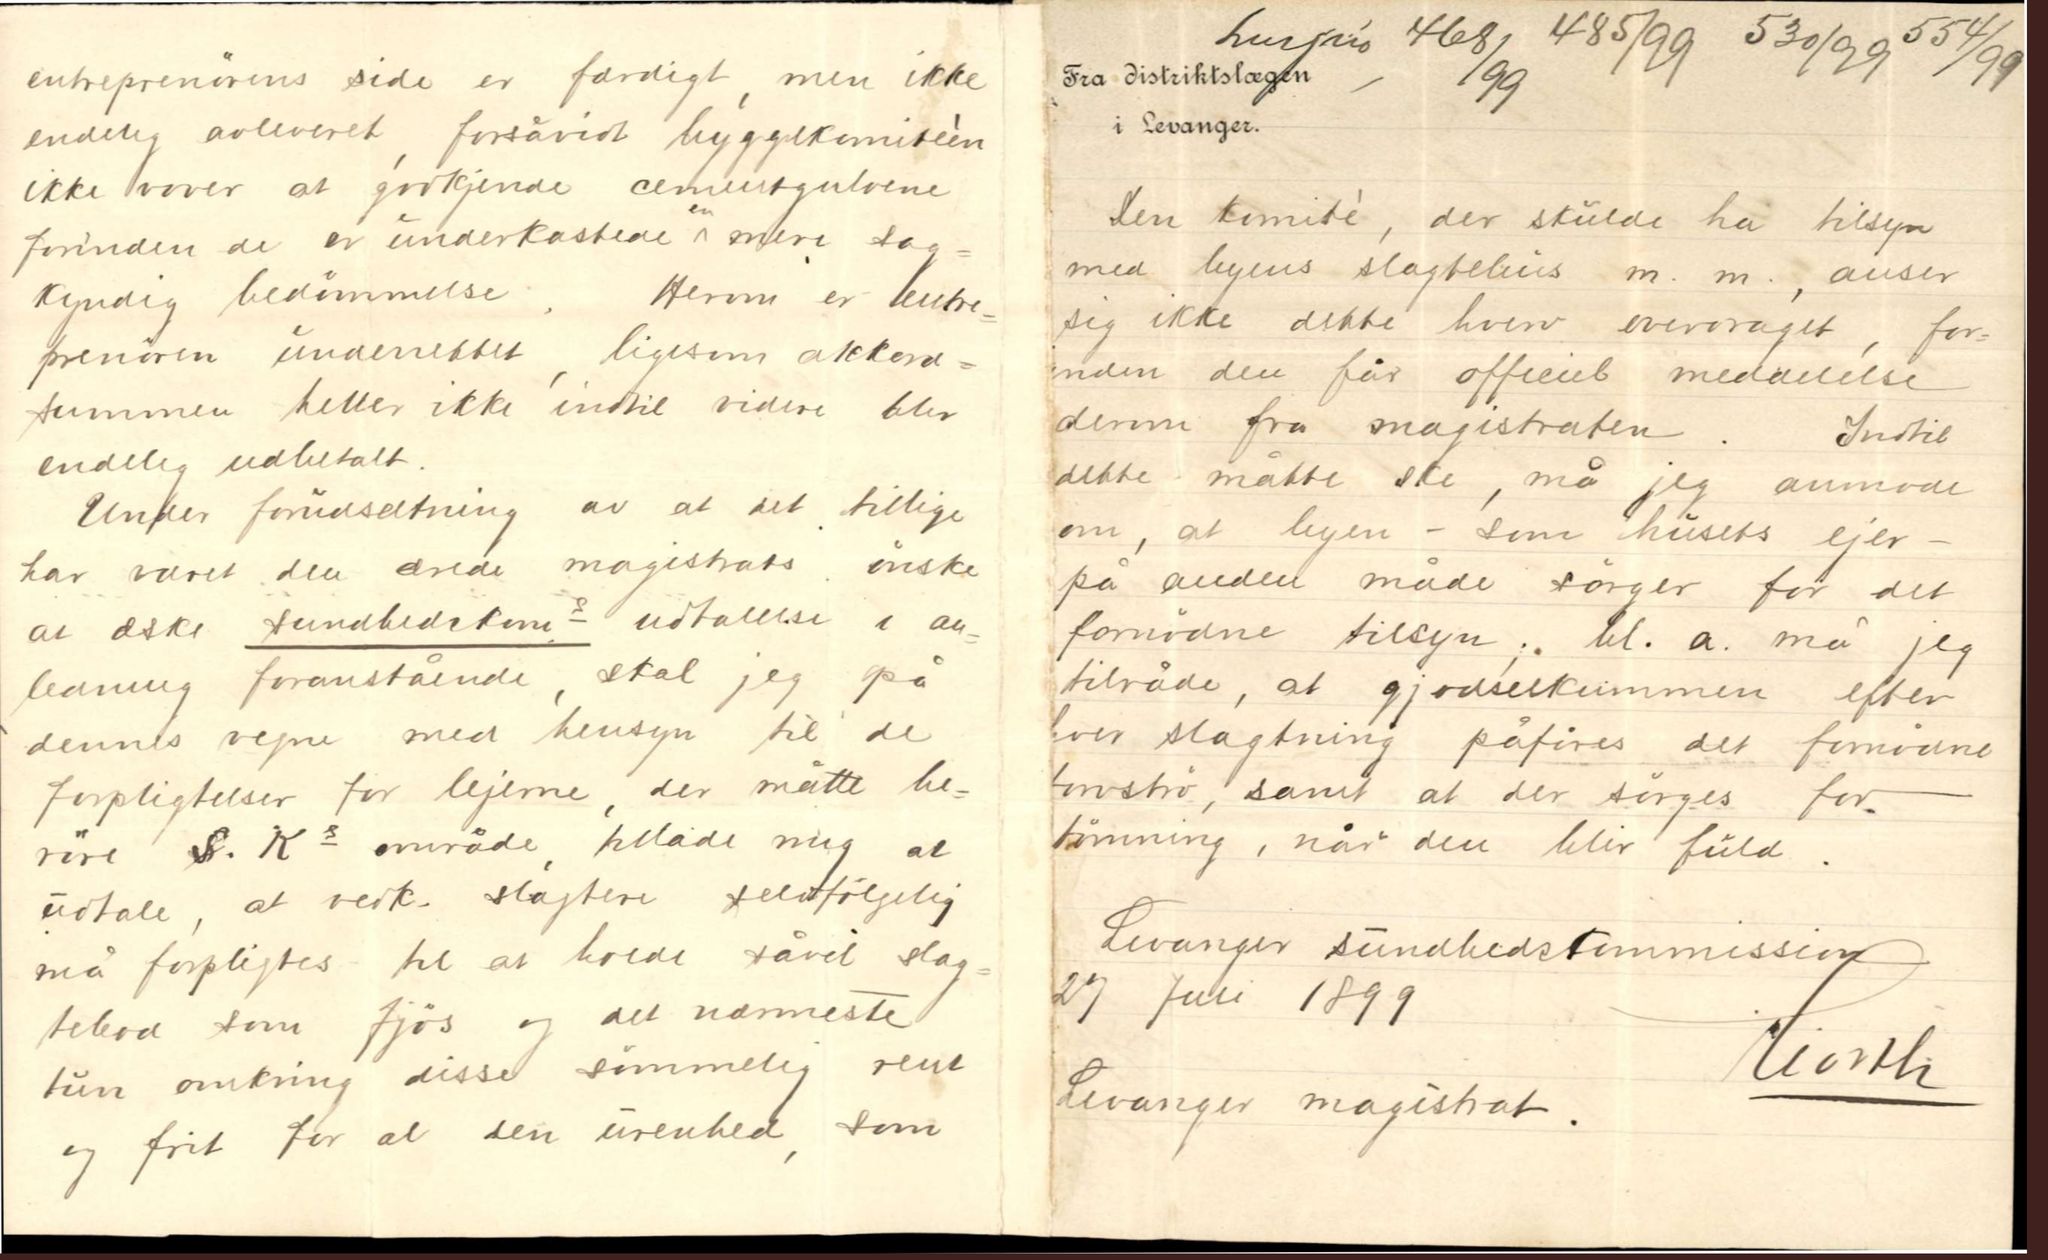 entreprenörens side er færdigt, men ikke
endelig avleveret, forsåvidt byggekomitéen
ikke vover at godkjende cementgulvene
forinden de er underkastede en mere sag=
kyndig bedömmelse. Herom er entre=
prenören underrettet, ligesom akkord=
summen heller ikke indtil videre blir
endelig udbetalt.
Under forudsætning av at det tillige
har været den ærede magistrats önske
at æske sundhedskoms udtalelse i an=
ledning foranstående, skal jeg på
dennes vegne med hensyn til de
forpligtelser for lejerne, der måtte be=
röre S. Ks område, tillade mig at
udtale, at vedk. slagtere selvfölgelig
må forpligtes til at holde såvel slag=
tebod som fjös og det nærmeste
tun omkring disse sömmelig rent
og frit for al den urenhed, som
468/99 485/99 530/99 554/99
Fra Distriktslægen
i Levanger.
Den komité, der skulde ha tilsyn
med byens slagtehus m. m., anser
sig ikke dette hverv overdraget, for=
inden den får officiel meddelelse
derom fra magistraten. Indtil
dette måtte ske, må jeg anmode
om, at byen – som husets ejer –
på anden måde sörger for det
fornödne tilsyn; bl. a. må jeg
tilråde, at gjödselkummen efter
hver slagtning påföres det fornödne
torvströ, samt at der sörges for
tömning, når den blir fuld.
Levanger sundhedskommission
27 Juli 1899
Hiorth
Levanger magistrat.